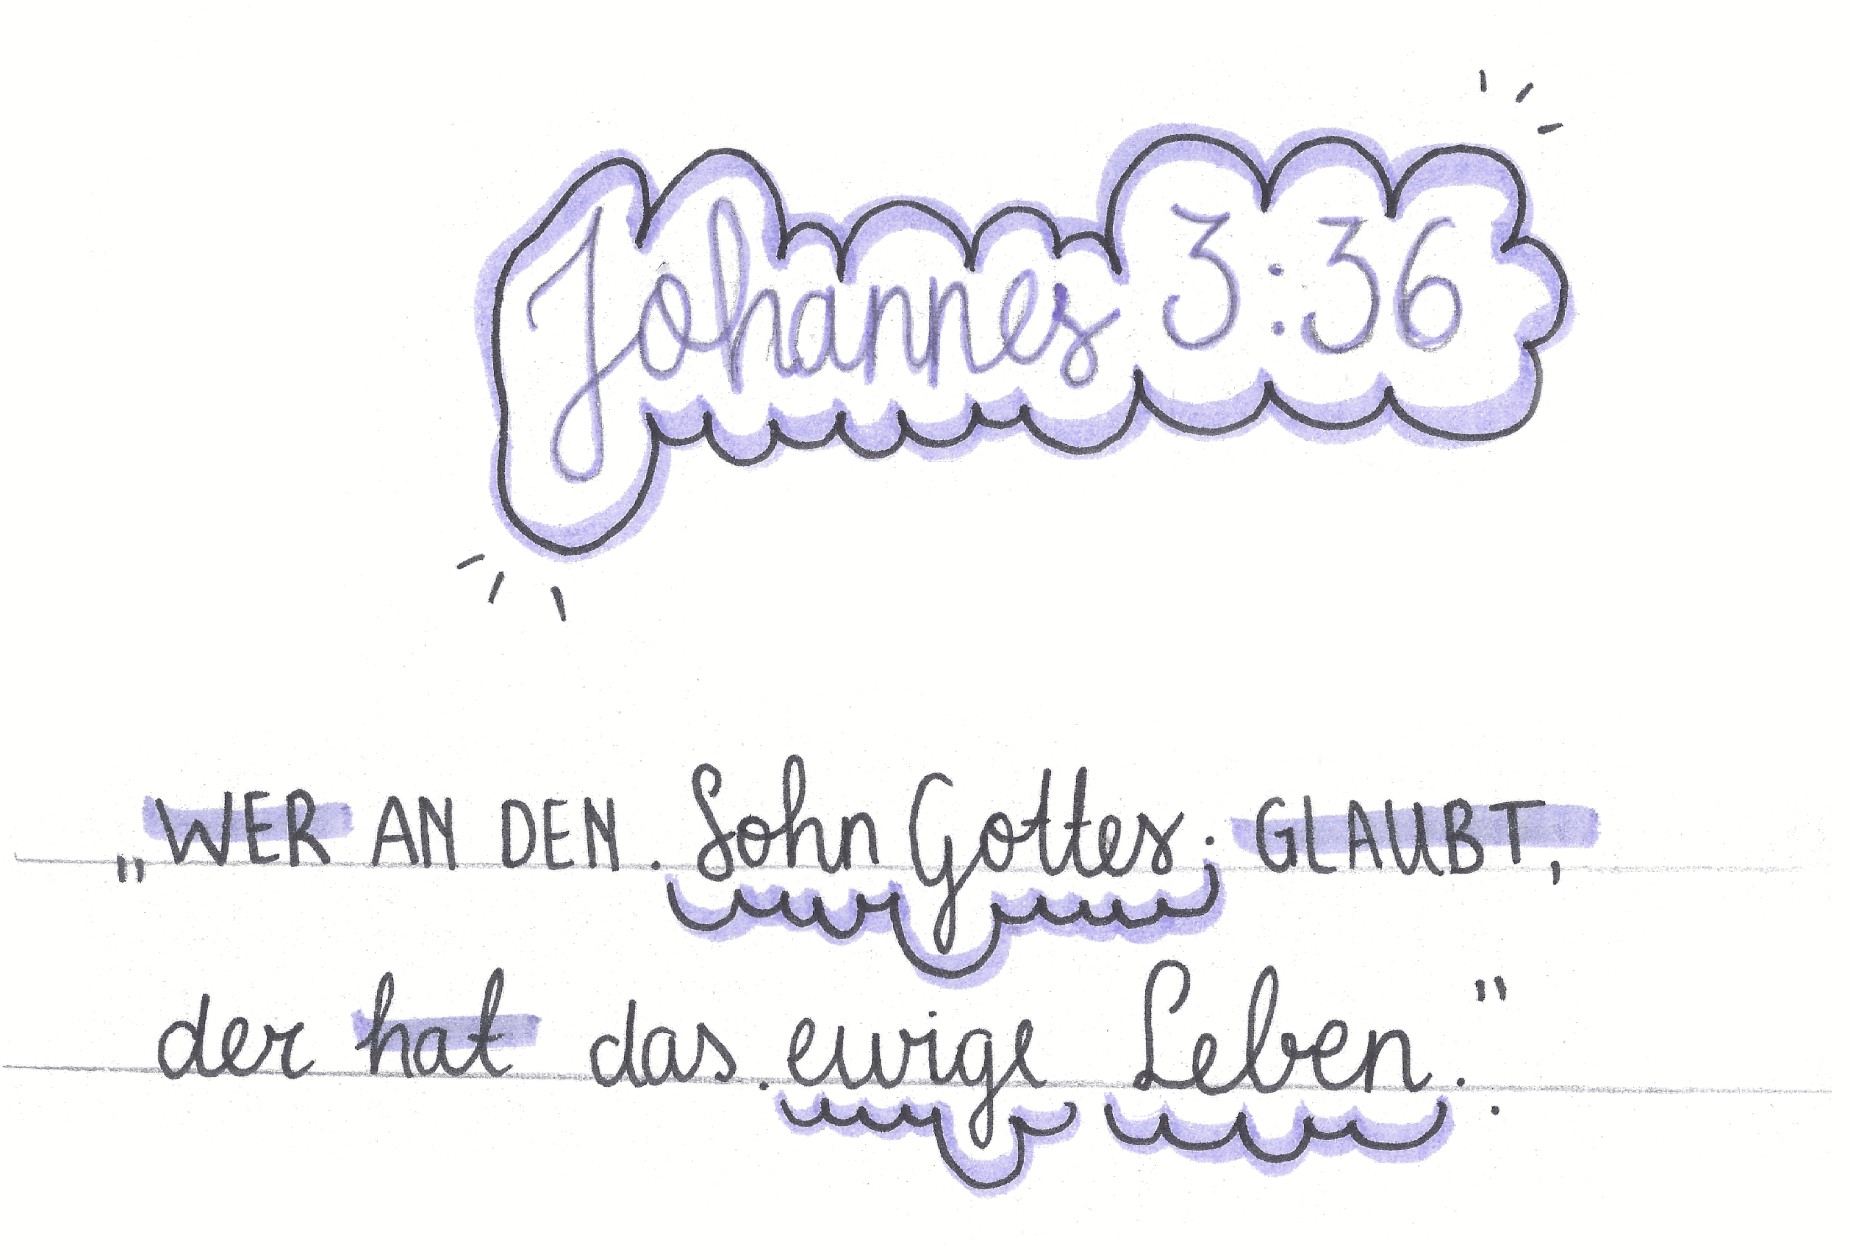 Johannes 3:36
„WER AN DEN Sohn Gottes GLAUBT,
der hat das ewige Leben."